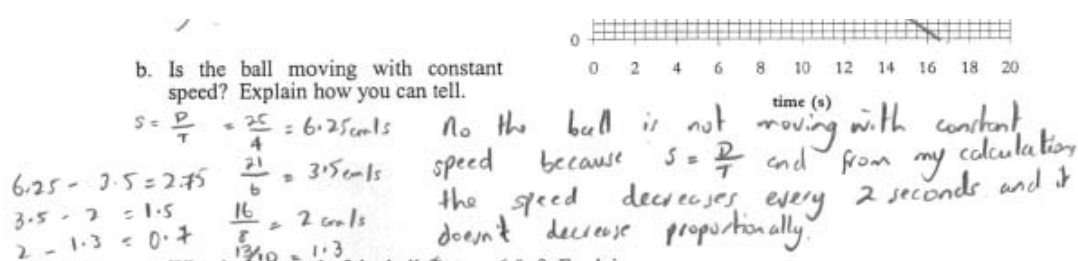 0
0 2 4 6 8 10 12 14 16 18 20
time (s)
b. Is the ball moving with constant
speed? Explain how you can tell.
S = D/T = 25/4 = 6.25cm/s
21/6 = 3.5cm/s
16/8 = 2 cm/s
13/10 = 1.3
6.25 - 3.5 = 2.75
3.5 - 2 = 1.5
2 - 1.3 = 0.7
No the ball is not moving with constant
speed because S = D/T and from my calculation
the speed decreases every 2 seconds and it
doesn't decrease proportionally.